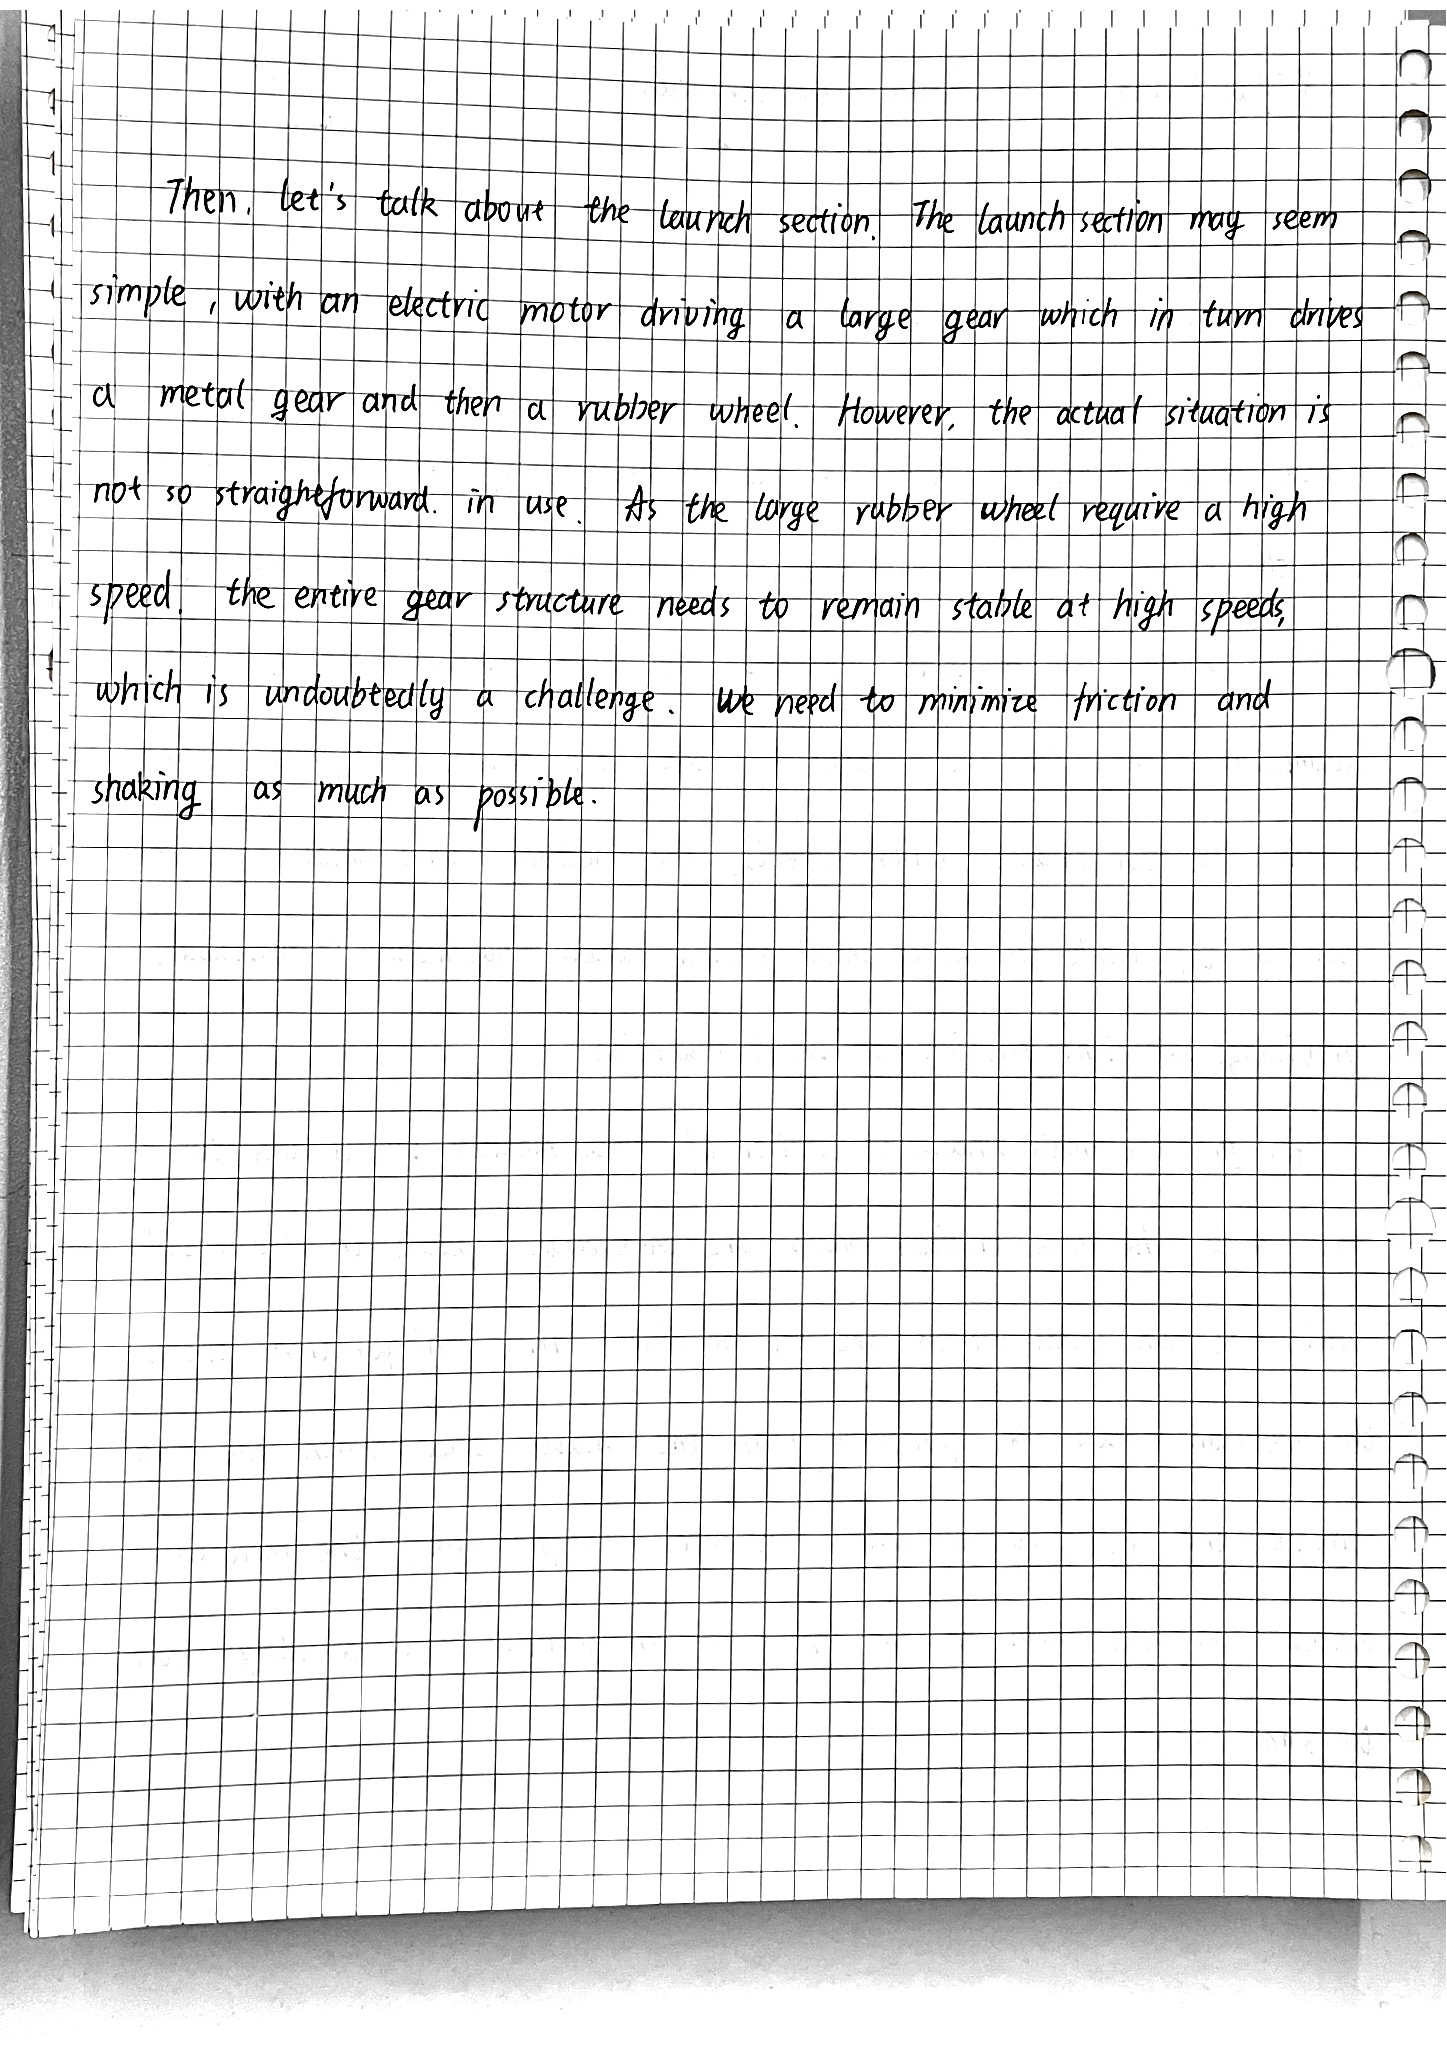 Then, let's talk about the launch section. The launch section may seem
simple, with an electric motor driving a large gear which in turn drives
a metal gear and then a rubber wheel. However, the actual situation is
not so straightforward. in use. As the large rubber wheel require a high
speed, the entire gear structure needs to remain stable at high speeds,
which is undoubtedly a challenge. We need to minimize friction and
shaking as much as possible.